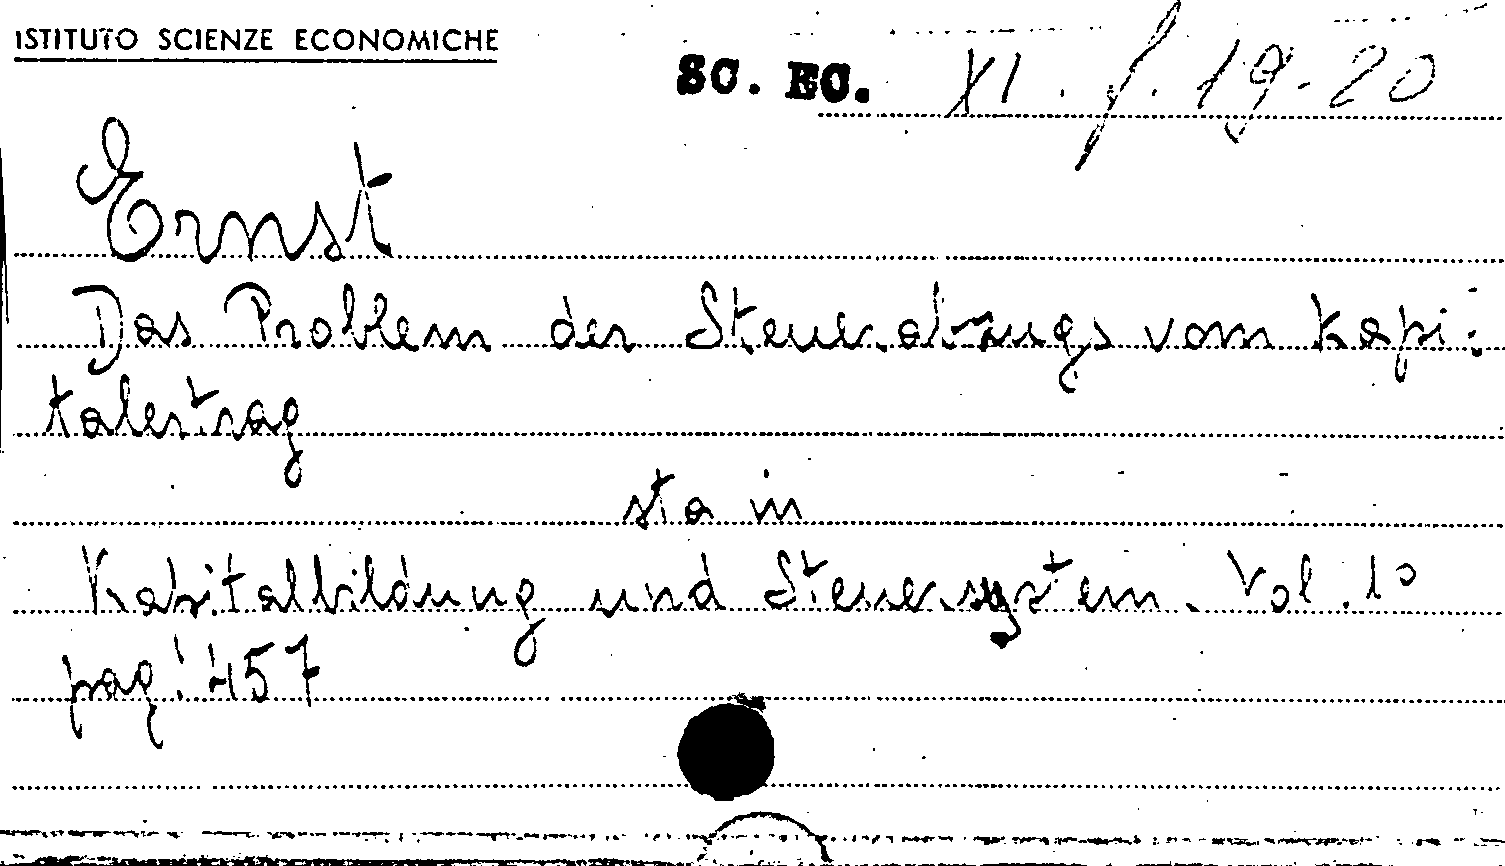 ISTITUTO SCIENZE ECONOMICHE
SC. EC. XI. f. 19-20
Ernst
Das Problem der Steuerabzugs vom Kapi-
talertrag
sta in
Kapitalbildung und Steuersystem. Vol. 1°
pag. 457